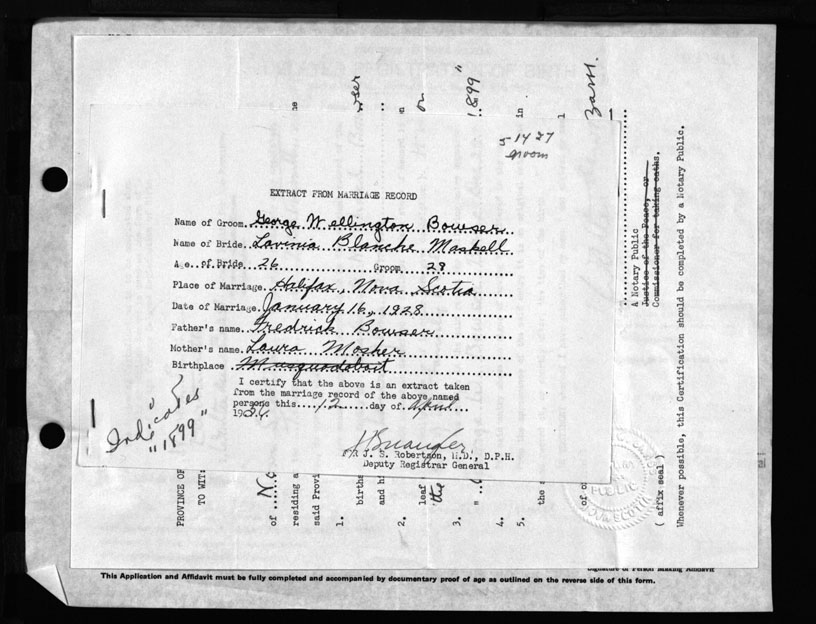 5 14 27
groom
EXTRACT FROM MARRIAGE RECORD
Name of Groom George Wellington Bowser
Name of Bride Lavinia Blanche Maskell
Age of Bride 26 Groom 28
Place of Marriage Halifax, Nova Scotia
Date of Marriage January 16, 1928
Father's name Fredrick Bowser
Mother's name Laura Mosher
Birthplace Musquodoboit
I certify that the above is an extract taken
from the marriage record of the above named
persons this 12 day of April
196
J. S. Robertson, M.D., D.P.H.
Deputy Registrar General
Indicates
"1899"
1899"
on
in
PROVINCE OF
TO WIT:
of N
residing a
said Provi
1. births
and hi
2. leaf
the
3.
4.
5. the s
of o
A Notary Public
Justice of the Peace, or
Commissioner for taking oaths.
(affix seal)
Whenever possible, this Certification should be completed by a Notary Public.
Signature of Person Making Affidavit
This Application and Affidavit must be fully completed and accompanied by documentary proof of age as outlined on the reverse side of this form.